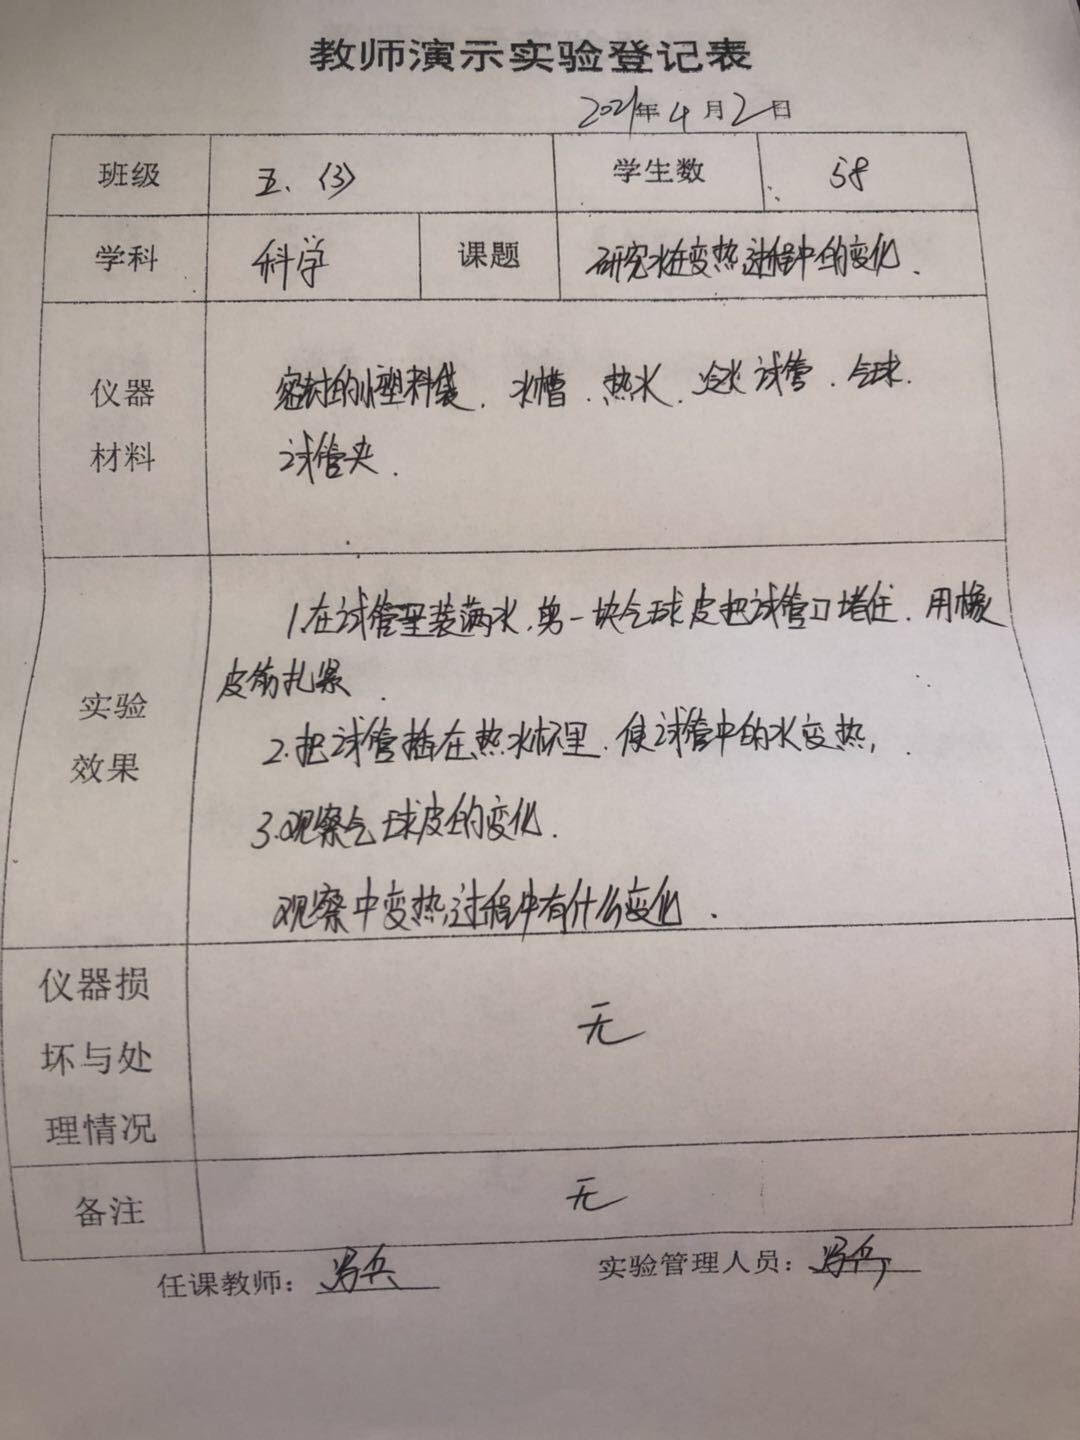 教师演示实验登记表
2021年4月2日
班级 五、(3) 学生数 58
学科 科学 课题 研究水在变热过程中的变化.
仪器
材料
密封的小塑料袋、水槽、热水、冷水 试管、气球.
试管夹.
实验
效果
1.在试管里装满水,剪一块气球皮把试管口堵住.用橡
皮筋扎紧.
2.把试管插在热水杯里.使试管中的水变热,
3.观察气球皮的变化.
观察中变热过程中有什么变化.
仪器损
坏与处
理情况
无
备注 无
任课教师:冯兵 实验管理人员:冯兵